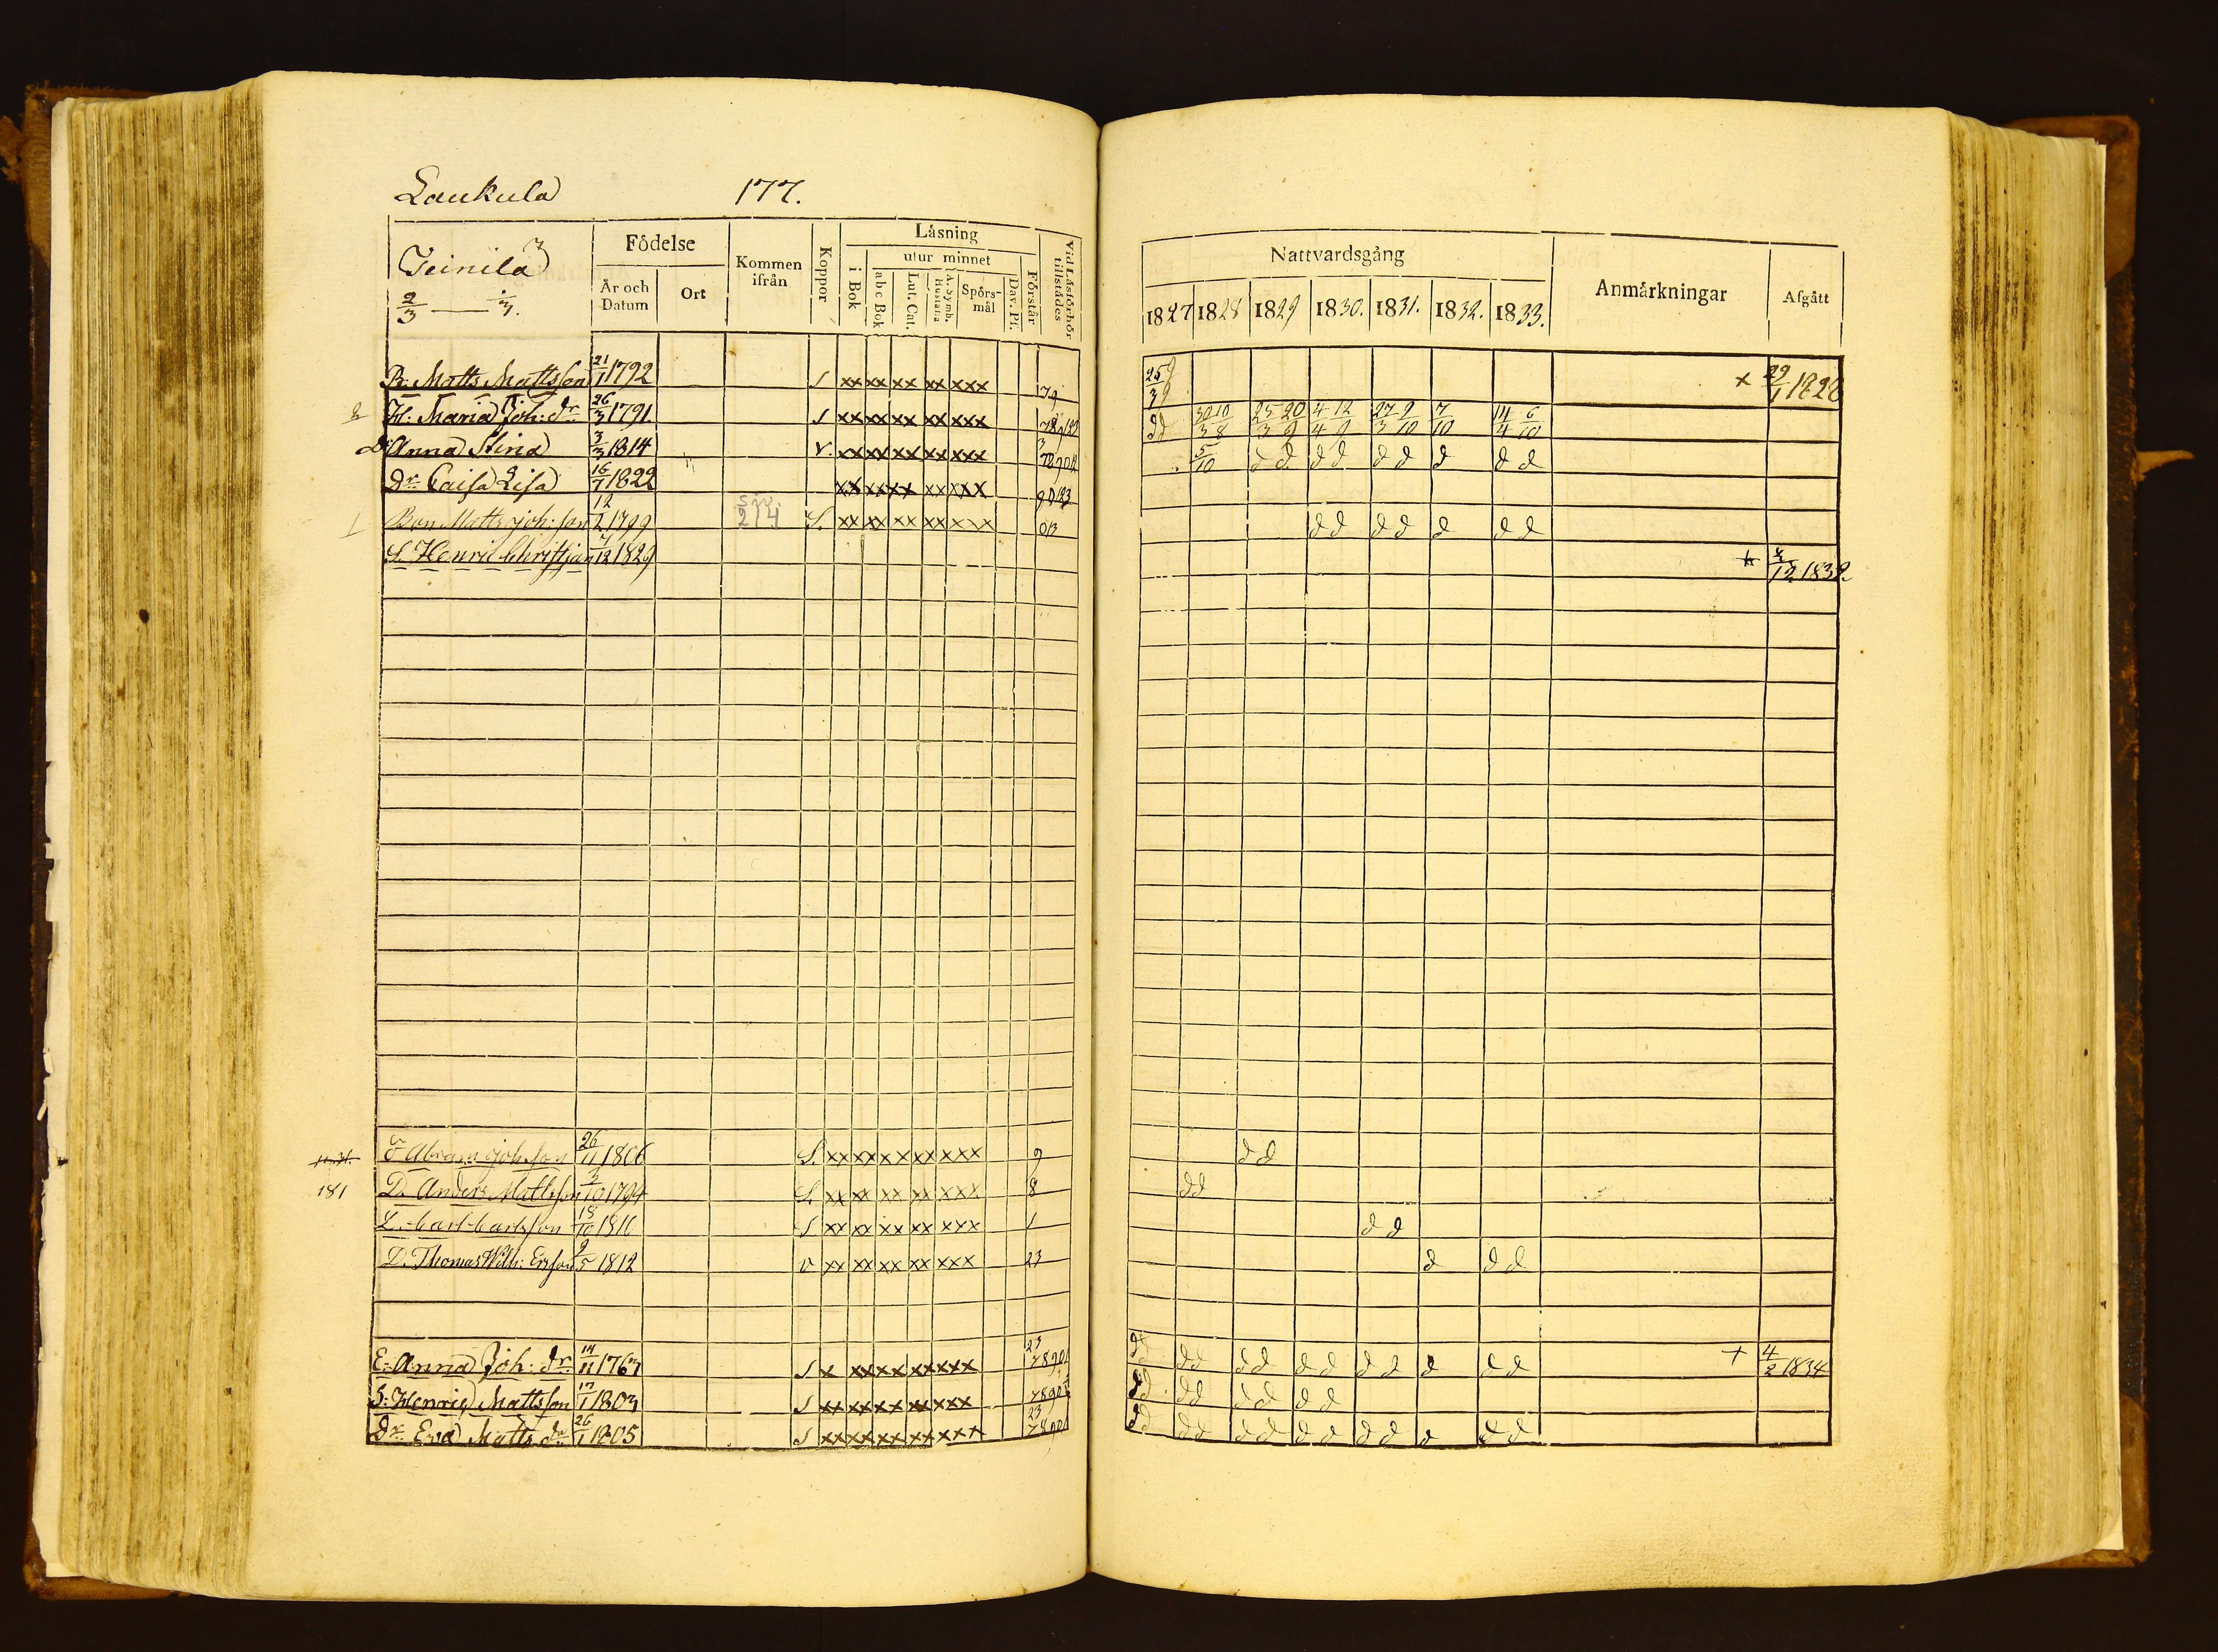 Laukula 177.
Födelse Läsning
Kommen ifrån Koppor utur minnet
År och Datum Ort i Bok abc Bok Lut. Cat. A. Symb. Hustafla Spörs-mål Dav. Ps. Förstår Vid Läsförhör tillstådes
2/3
Nattvardsgång Anmärkningar Afgått
1827 1828 1829 1830. 1831. 1832. 1833.
B. Matts Mattsson 21/1 1792 S xx xx xx xx xxx 79 25/3 9/9 x 29/1 1828
2 H: Maria Joh: dr 26/3 1791. S xx xx xx xx xxx dd 30/3 10/8 25/3 20/9 4/4 12/9 27/3 9/10 7/10 14/4 6/10
Dr Anna Stina 3/3 1814 v. xx xx xx xx xxx 5/10 d d d d d d d d d
Dr Caisa Lisa 16/7 1822 xx xx xx xx xxx
1 Bon Matts Joh:son 12/2 1799 214 S. xx xx xx xx xxx 013 d d d d d d d
S. Henric Christian 7/12 1829 x /12 1832.
Abram Joh:son 26/11 1806 S. xx xx xx xx xxx 9 d d
181 D. Anders Mattsson 2/10 1794 S. xx xx xx xx xxx 8 dd
L. Carl Carlsson 18/10 1810 S xx xx xx xx xxx 1 d d
D. Thomas Wilh: Ersson 9/5 1812 v xx xx xx xx xxx 23 d d d
E: Anna Joh: dr 14/11 1767 S x xx xx xx xxx 23 78901 dd dd dd dd d d d d d + 4/2 1834
S: Henric Mattsson 17/1 1803 S xx xx xx xx xxx 7890 dd dd dd d d
Dr Eva Matts dr 26/1 1805 S xx xx xx xx xxx 23 78901 dd dd dd d d d d d d d